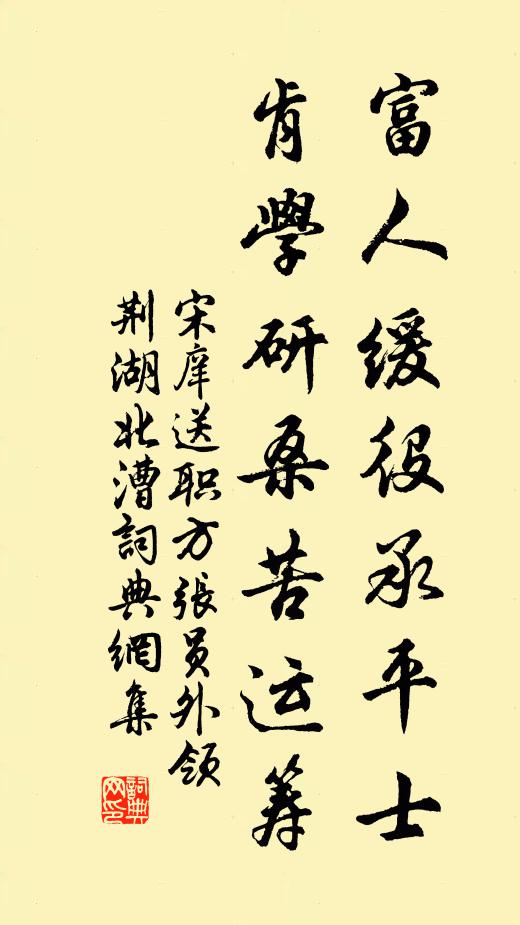 富人缓役承平士
肯學研桑苦运筹
宋庠送职方張員外領
荆湖北漕詞典網集
詞典
网印